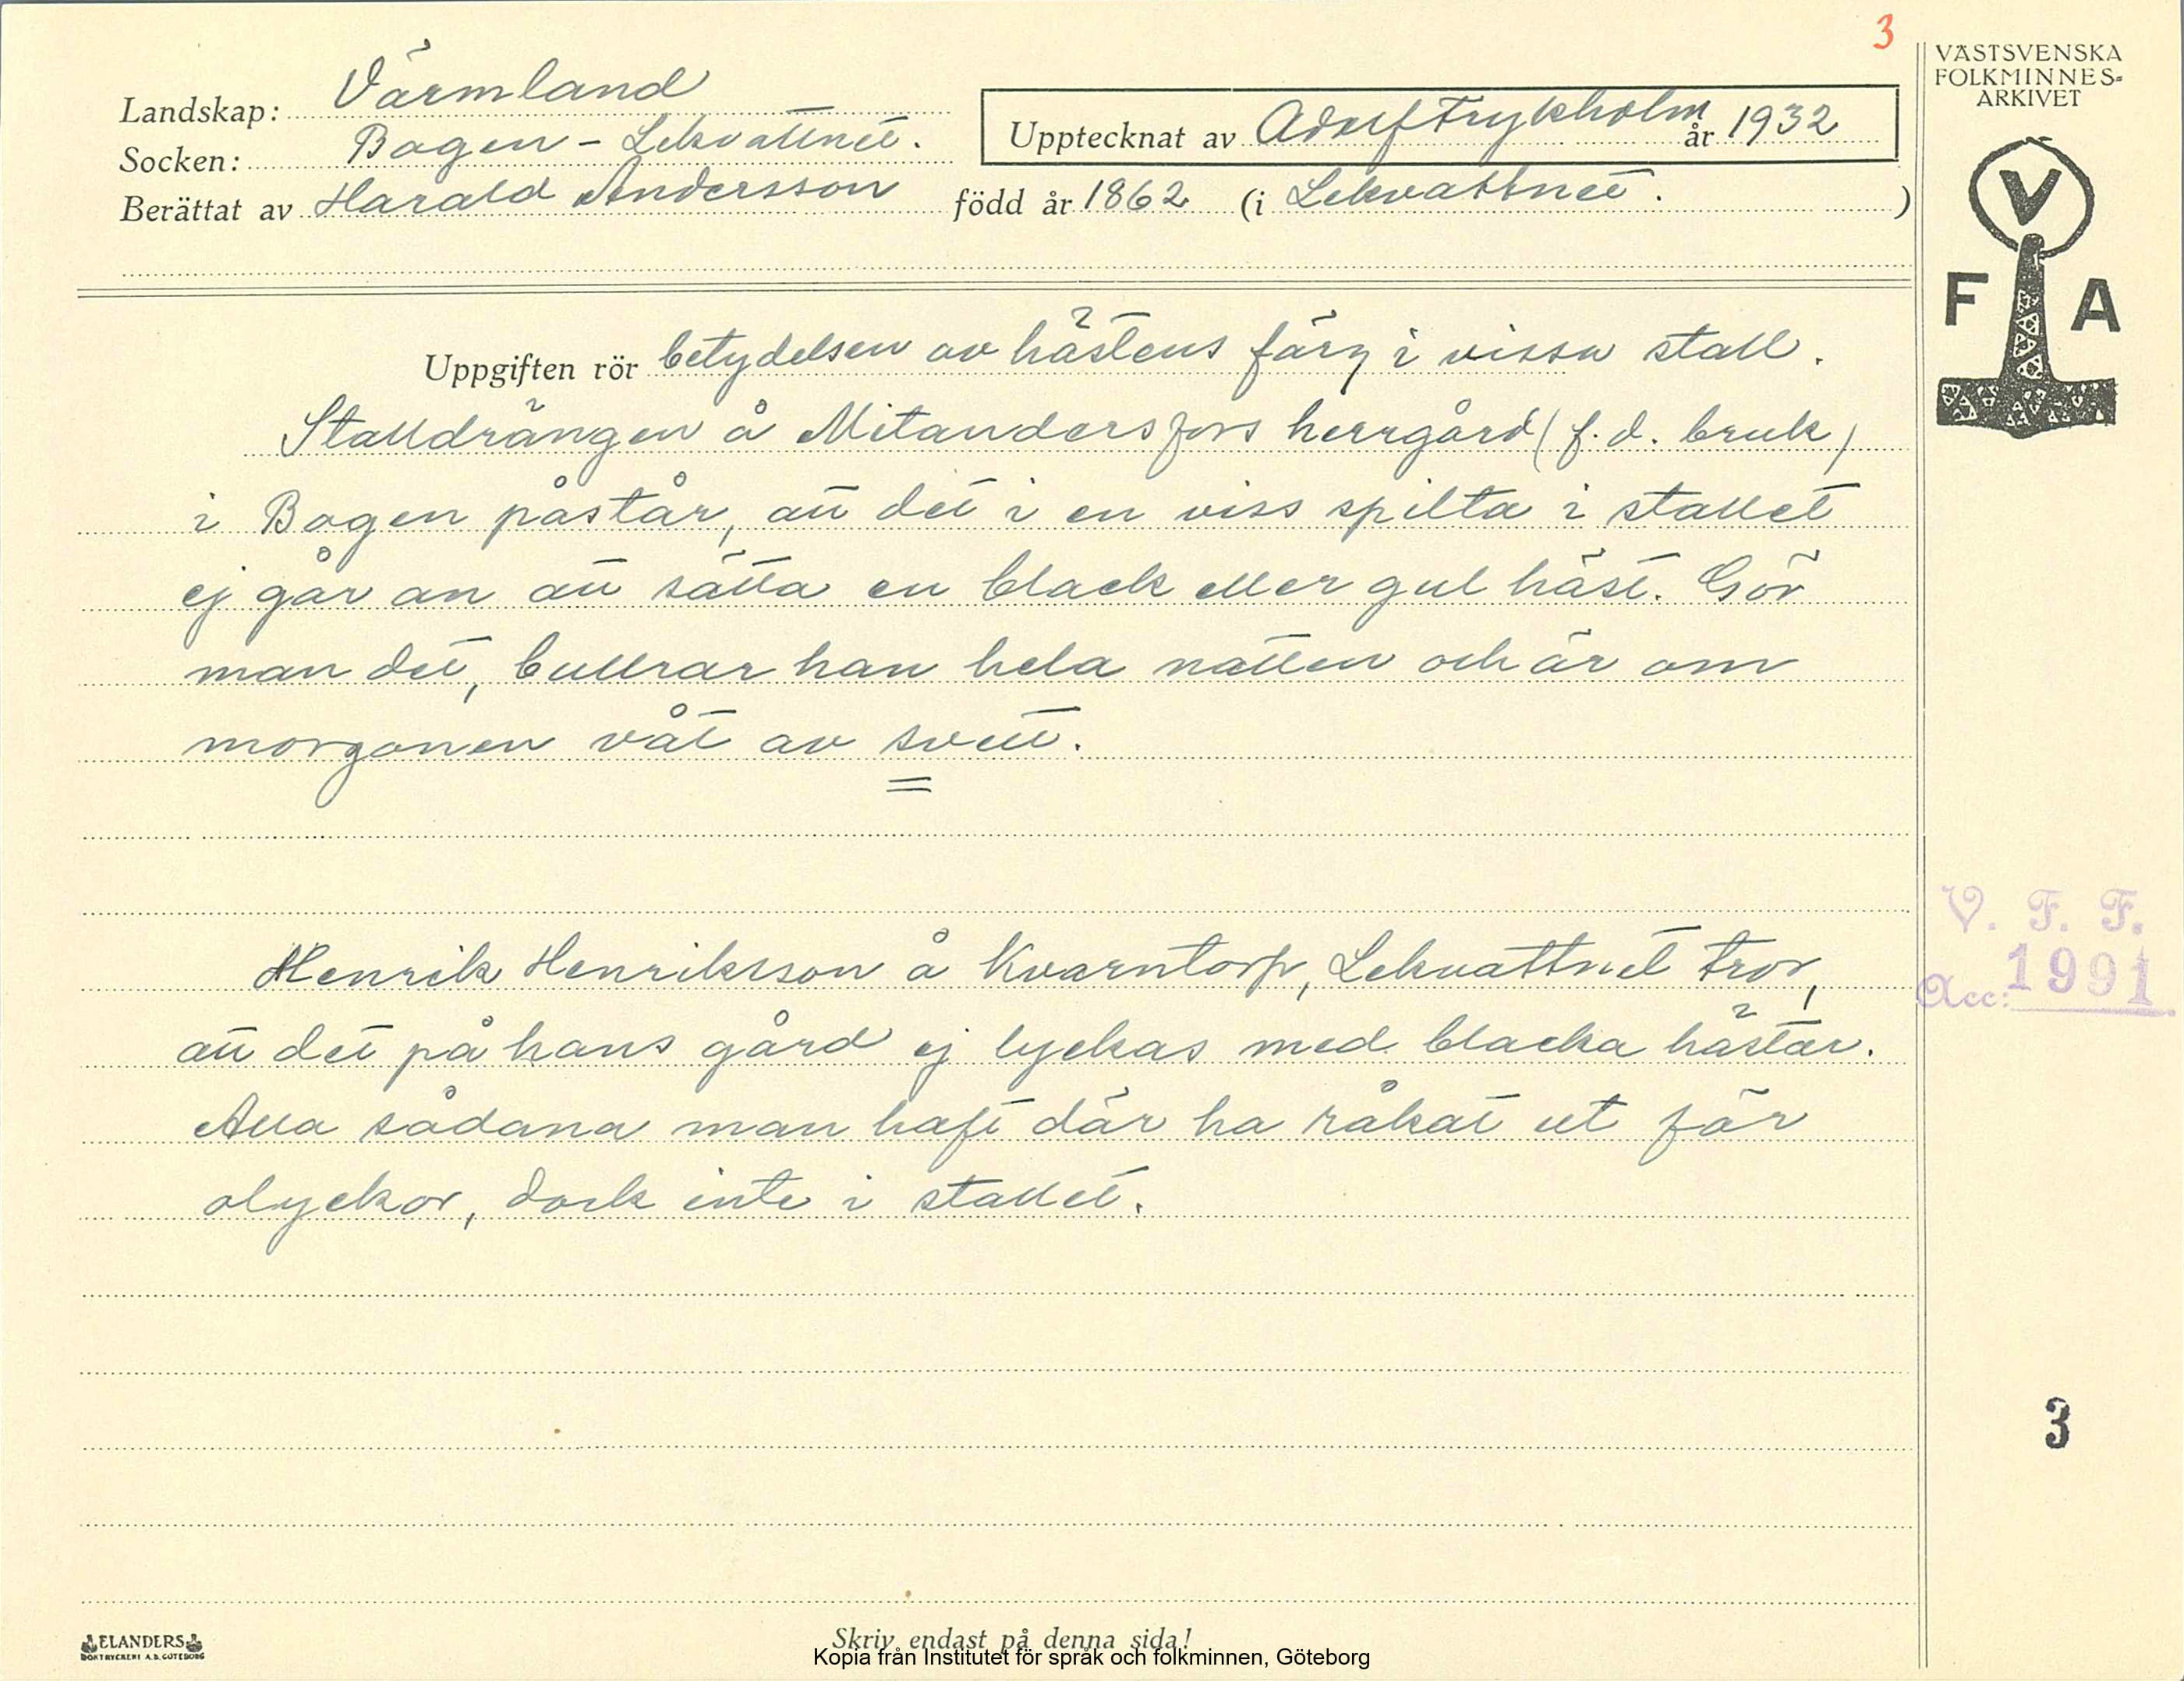 3
VÄSTSVENSKA
FOLKMINNES-
ARKIVET
Landskap: Värmland
Socken: Bogen - Lekvattnet.
Upptecknat av Adolf Frykholm år 1932
Berättat av Harald Andersson född år 1862 (i Lekvattnet. )
V
F A
Uppgiften rör betydelsen av hästens färg i vissa stall.
Stalldrängen å Mitandersfors herrgård (f.d. bruk)
i Bogen påstår, att det i en viss spilta i stallet
ej går an att sätta en black eller gul häst. Gör
man det, bullrar han hela natten och är om
morgonen våt av svett.
Henrik Henriksson å Kvarntorp, Lekvattnet tror,
att det på hans gård ej lyckas med blacka hästar.
Alla sådana man haft där ha råkat ut för
olyckor, dock inte i stallet.
V. F. F.
Acc: 1991
3
ELANDERS
BOKTRYCKERI A.B. GÖTEBORG
Skriv endast på denna sida!
Kopia från Institutet för språk och folkminnen, Göteborg